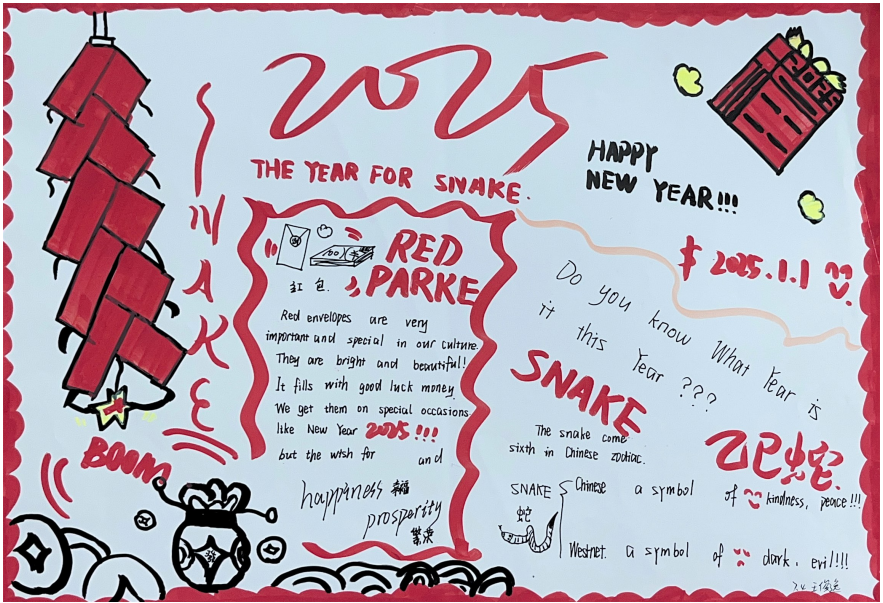 2025
THE YEAR FOR SNAKE.
SNAKE
BOOM
HAPPY
NEW YEAR!!!
$ 2025.1.1
RED
PARKE
红包.
100
Red envelopes are very
important and special in our culture.
They are bright and beautiful!
It fills with good luck money.
We get them on special occasions
like New Year 2025!!!
but the wish for and
happiness 幸福
prosperity
繁荣
Do you know What Year is
it this Year ???
SNAKE
乙巳蛇.
The snake come
sixth in Chinese zodiac.
SNAKE
蛇
Chinese a symbol of kindness, peace!!!
Westnet. a symbol of dark, evil!!!